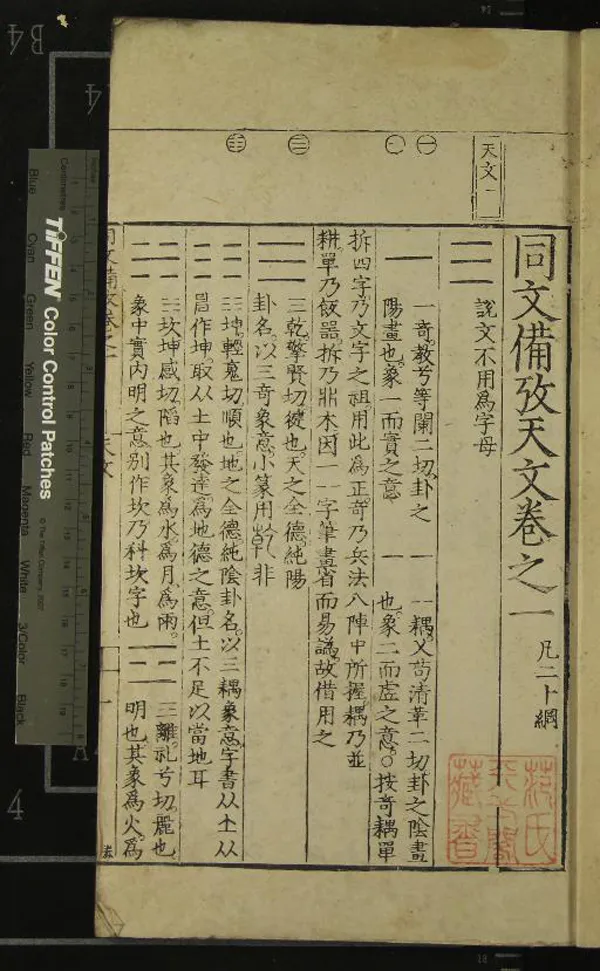 同文備攷天文卷之一 凡二十綱
天文一
㊀
㊁
㊂
㊄
☰
說文不用爲字母
一 一奇敎兮等闌二切卦之
陽畫也象一而實之意
⚋ 一耦乂茍清革二切卦之陰畫
也象二而虛之意○按奇耦單
拆四字乃文字之祖用此爲正奇乃兵法八陣中所握耦乃並
耕單乃飯器拆乃
木因一⚋字筆畫省而易譌故借用之
☰ 三乾擎賢切健也天之全德純陽
卦名以三奇象意小篆用乾非
☷ 坤輕鬼切順也地之全德純陰卦名以三耦象意字書从土从
作坤取从土中發達爲地德之意但土不足以當地耳
☵ 坎坤感切陷也其象爲水爲月爲雨
象中實內明之意別作坎乃科坎字也
☲ 三離礼兮切麗也
明也其象爲火爲
同文備攷卷之一
天文
范氏天一閣藏書
TIFFEN Color Control Patches
© The Tiffen Company, 2007
Centimetres
Blue
Cyan
Green
Yellow
Red
Magenta
White
3/Color
Black
B4
A4
4